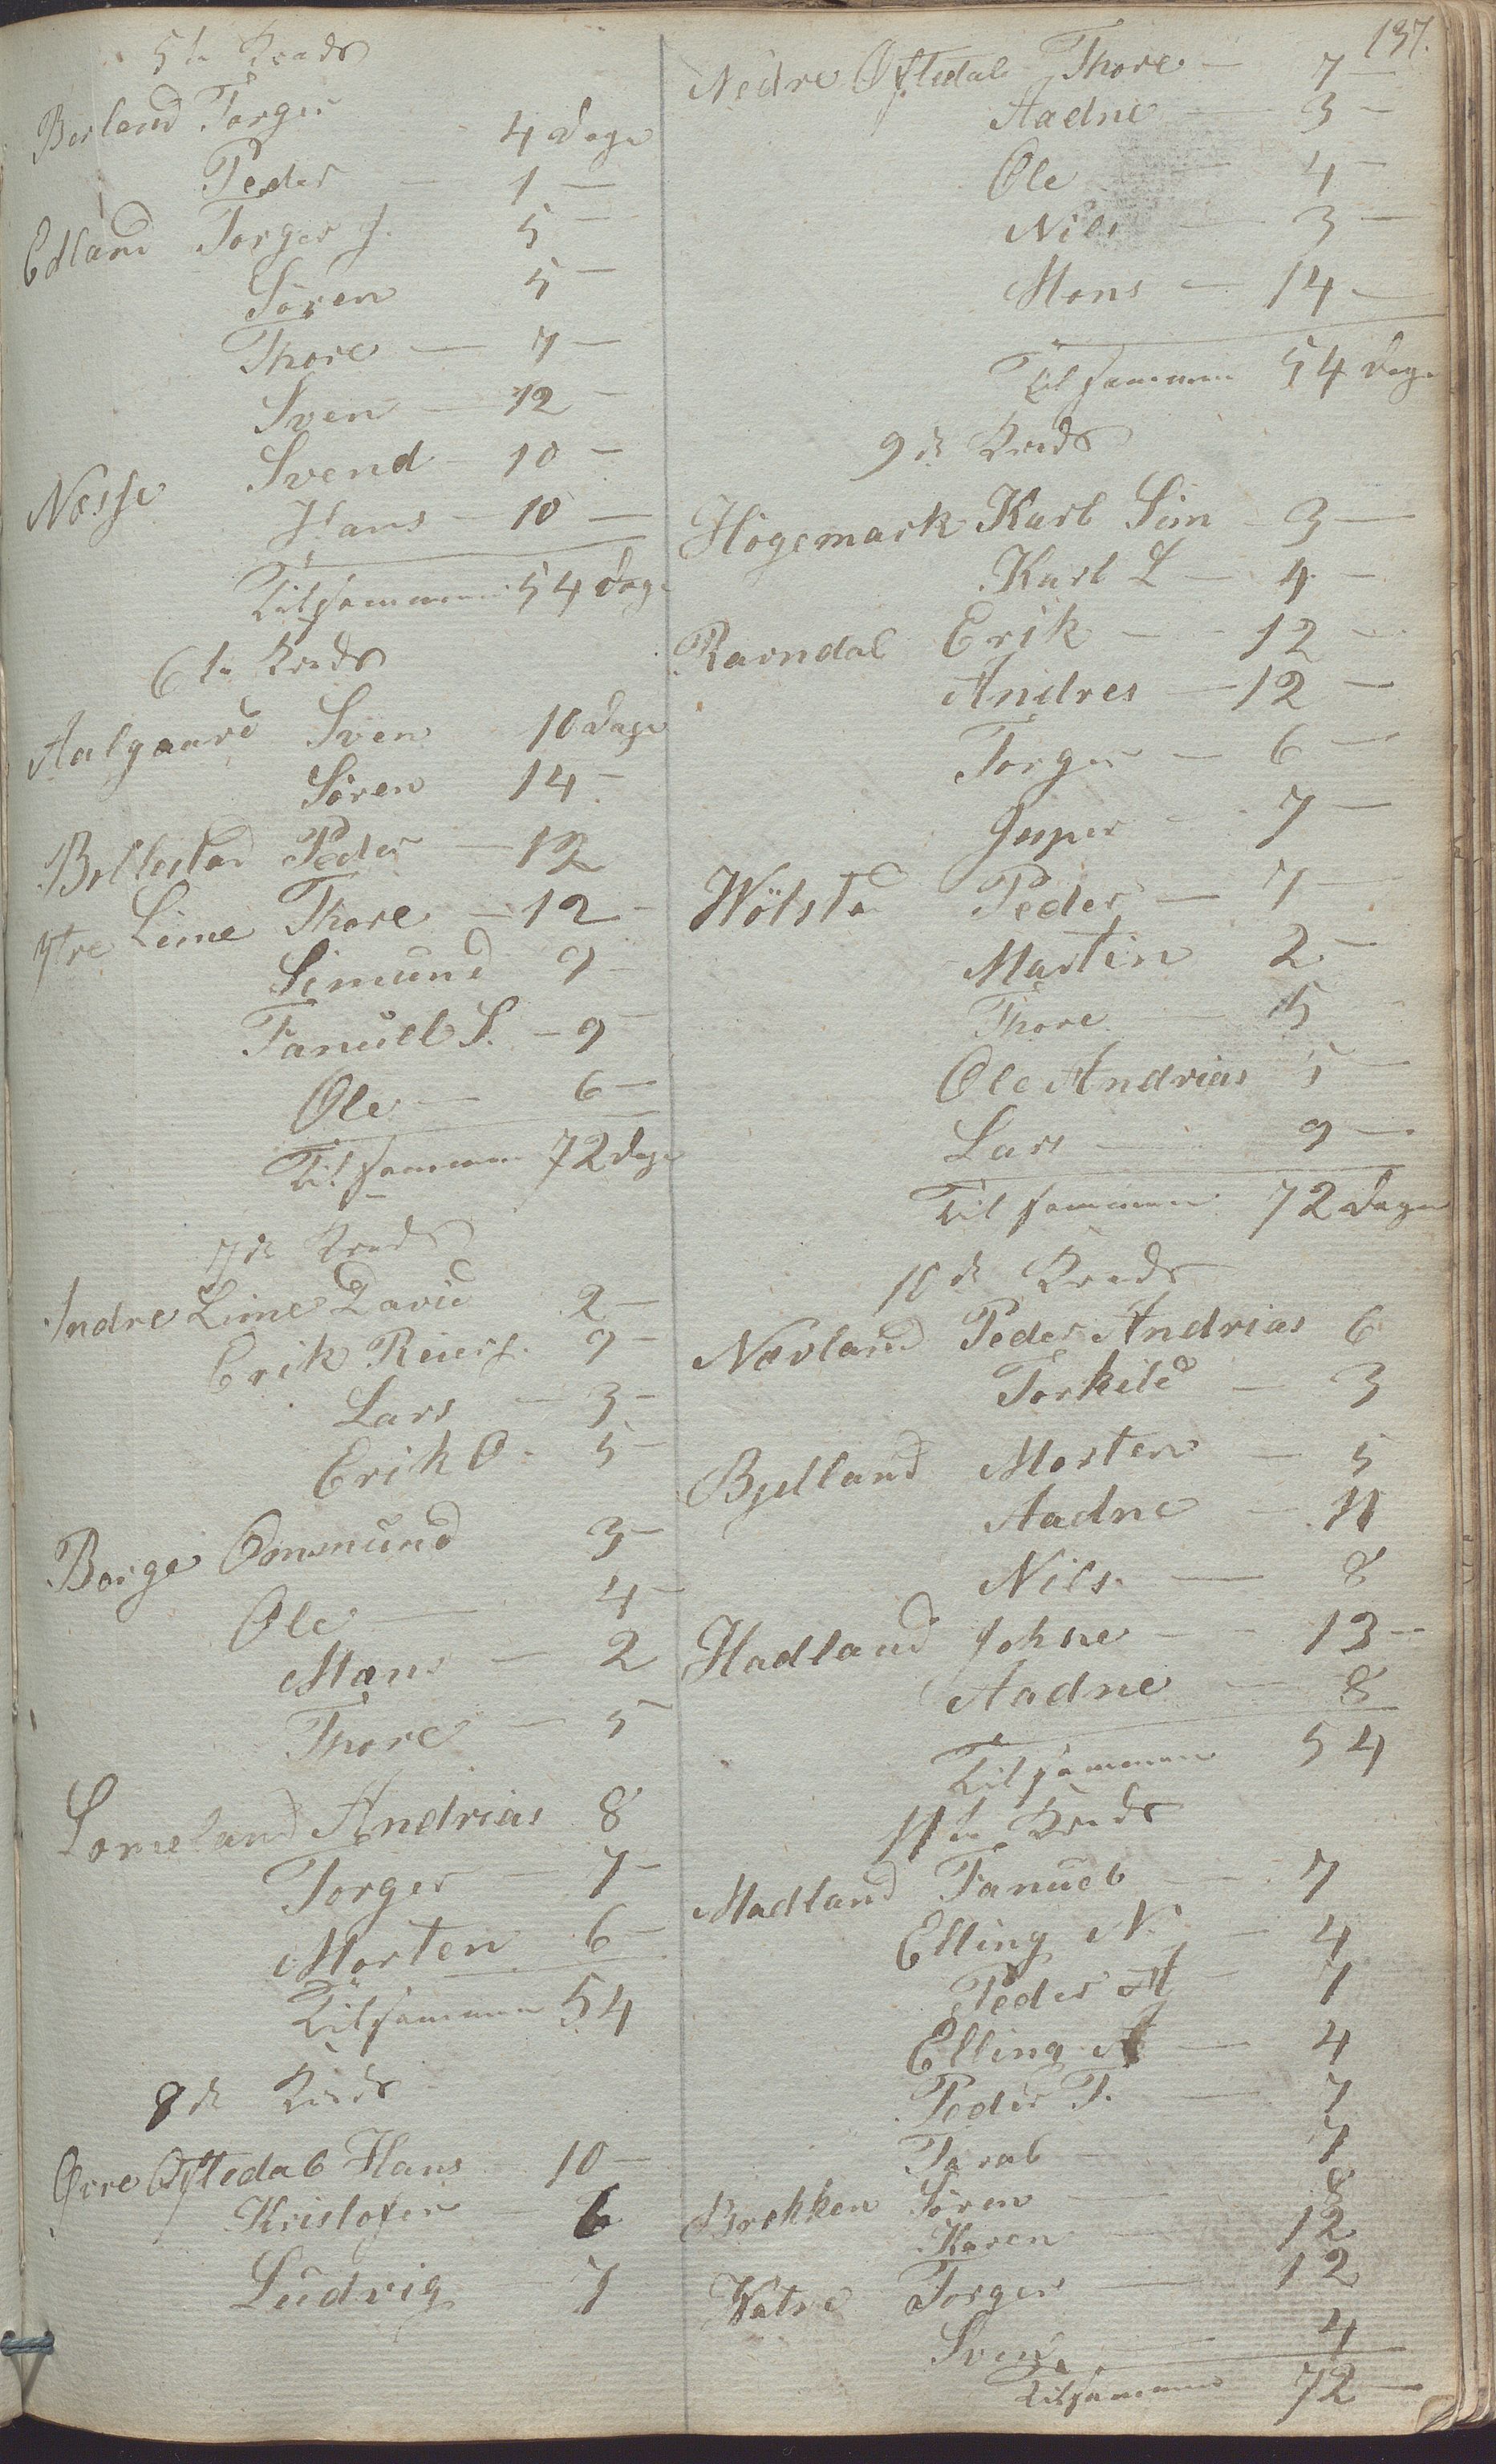 137.
5te Kreds
Berland Torger 4 dage
Peder — 1 —
Edland Torger J. 5 —
Sören 5 —
Thore — 7 —
Sven — 12 —
Næsse Svend — 10 —
Hans — 10 —
Tilsammen 54 dage
6te Kreds
Aalgaard Sven 10 dage
Sören 14 —
Bollestad Peder — 12
Ytre Lime Thore — 12 —
Simund 9 —
Tanuel S. — 9 —
Ole — 6 —
Tilsammen 72 dage
7de Kreds
Indre Lime David 2 —
Erik Reiers. 9 —
Lars — 3 —
Erik O. 5 —
Borge Ommund 3 —
Ole — 4 —
Mons — 2
Thore — 5
Lomeland Andrias 8
Torger — 7 —
Morten 6 —
Tilsammen 54
8de Kreds
Øvre Oftedal Hans 10 —
Kristofer — 6
Ludvig — 7
Nedre Oftedal Thore — 7 —
Aadne — 3 —
Ole — 4 —
Nils — 3 —
Mons — 14 —
Tilsammen 54 dage
9de Kreds
Högemark Karl Sim — 3 —
Karl L — 4 —
Ravndal Erik — 12 —
Andres — 12 —
Torger — 6 —
Jesper — 7 —
Wölstad Peder — 7 —
Martin 2 —
Thore — 5
Ole Andrias 5 —
Lars — 9 —
Tilsammen 72 dage
10de Kreds
Nævland Peder Andrias 6
Torkild — 3
Bjelland Morten — 5
Aadne — 11
Nils — 8
Hadland Johne — 13 —
Aadne — 8
Tilsammen 54
11te Kreds
Madland Tanuel — 7
Elling N. — 4
Peder A — 7
Elling A — 4
Peder T. — 7
Taral — 7
Brekken Sören — 8
Karen — 12
Watne Torger — 12
Sven — 4
Tilsammen 72 —